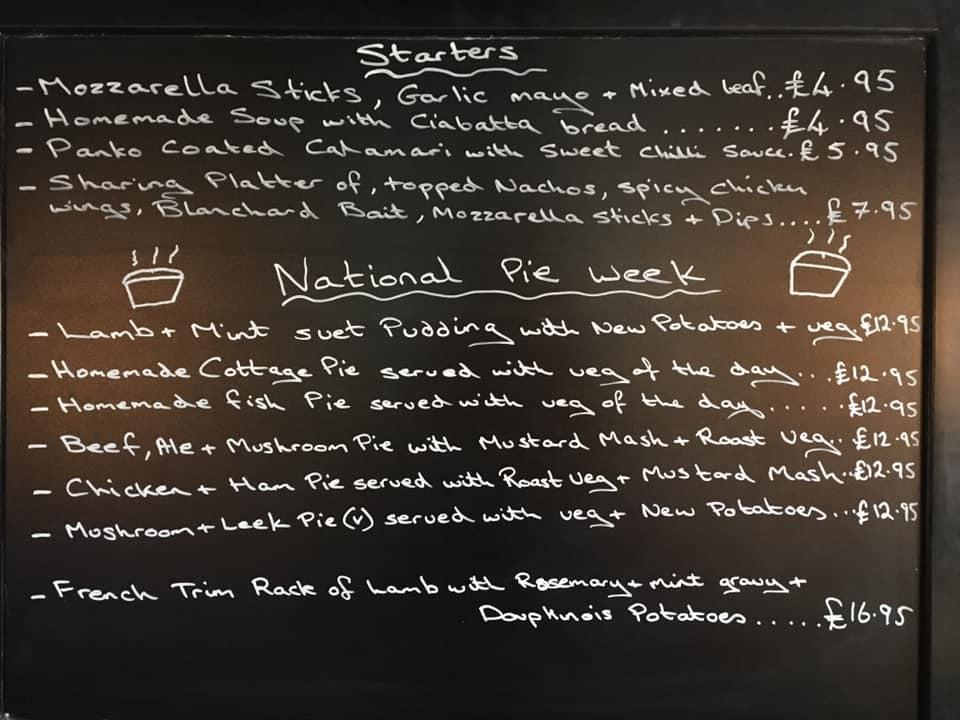 Starters
- Mozzarella Sticks, Garlic mayo + Mixed leaf..£4.95
- Homemade Soup with Ciabatta bread .......£4.95
- Panko Coated Calamari with Sweet Chilli Sauce.£5.95
- Sharing Platter of, topped Nachos, spicy chicken
wings, Blanchard Bait, Mozzarella sticks + Dips....£7.95
National Pie Week
- Lamb + Mint suet Pudding with New Potatoes + veg.£12.95
- Homemade Cottage Pie served with veg of the day...£12.95
- Homemade fish Pie served with veg of the day......£12.95
- Beef, Ale + Mushroom Pie with Mustard Mash + Roast Veg..£12.95
- Chicken + Ham Pie served with Roast Veg + Mustard Mash..£12.95
- Mushroom + Leek Pie (v) served with veg + New Potatoes...£12.95
- French Trim Rack of Lamb with Rosemary + mint gravy +
Douphinois Potatoes.....£16.95